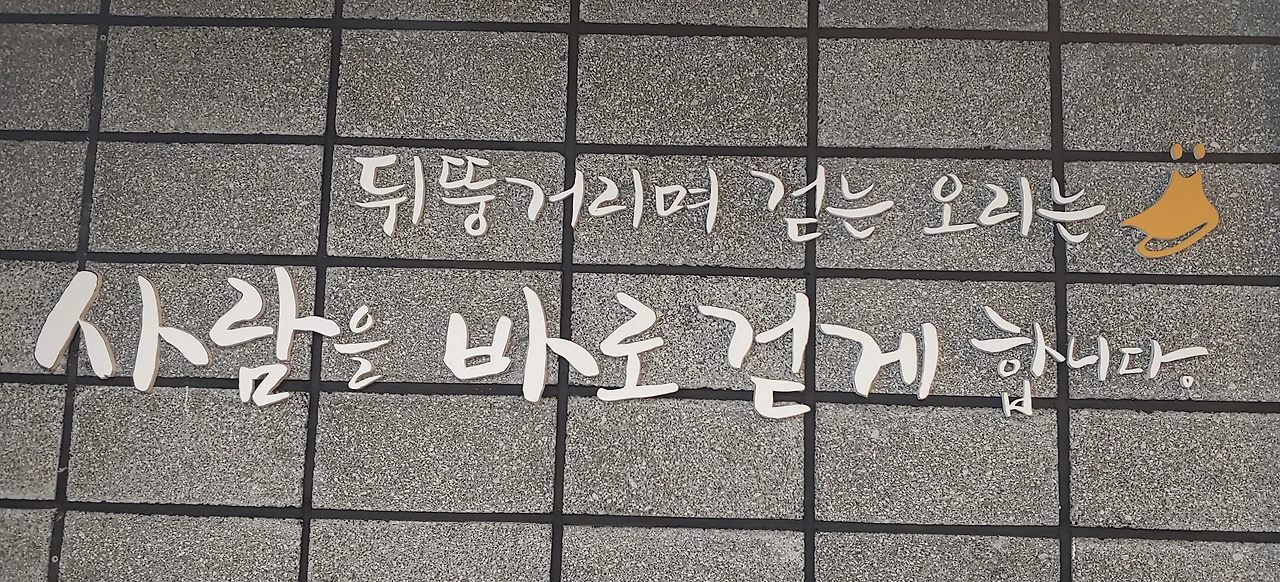 뒤뚱거리며 걷는 오리는
사람을 바로 걷게 합니다.